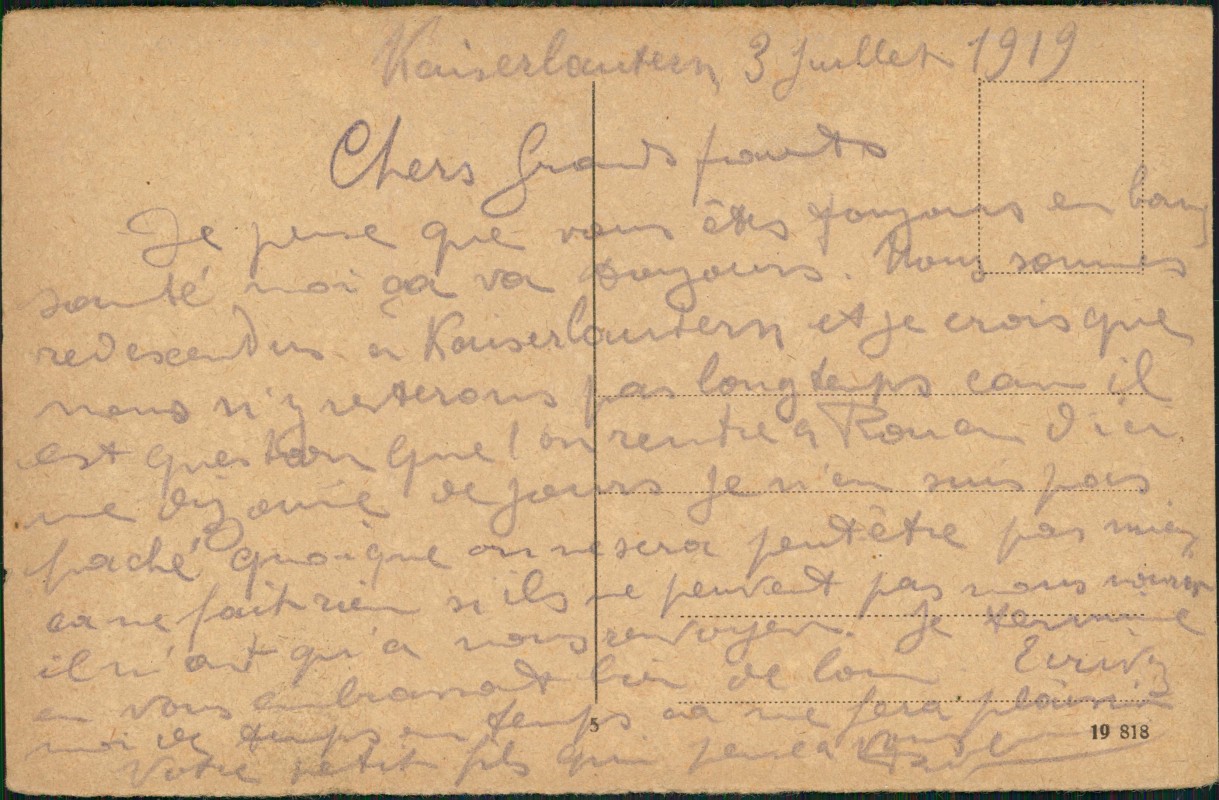 Kaiserlautern 3 Juillet 1919
Chers Grands parents
Je pense que vous êtes toujours en bonne
santé moi ça va toujours. Nous sommes
redescendus à Kaiserlautern et je crois que
nous n'y resterons pas longtemps car il
est question que l'on rentre à Rouen d'ici
une dizaine de jours je n'en suis pas
faché quoique on ne sera peut être pas mieux
ca ne fait rien si ils ne peuvent pas nous nourrir
il n'ont qu'a nous renvoyer. Je termine
en vous embrassant bien de loin Ecrivez
moi de temps en temps ca me fera plaisir
Votre petit fils qui pense a vous
5
19 818